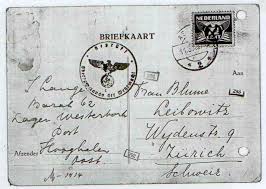 BRIEFKAART
NEDERLAND
Geprüft
Oberkommando der Wehrmacht
Frau Blume
Leibowitz
Wydenstr. 9
Zürich
Schweiz
J Lange
Barak 62
Lager Westerbork
Post
Afzender
Hooghalen
Oost